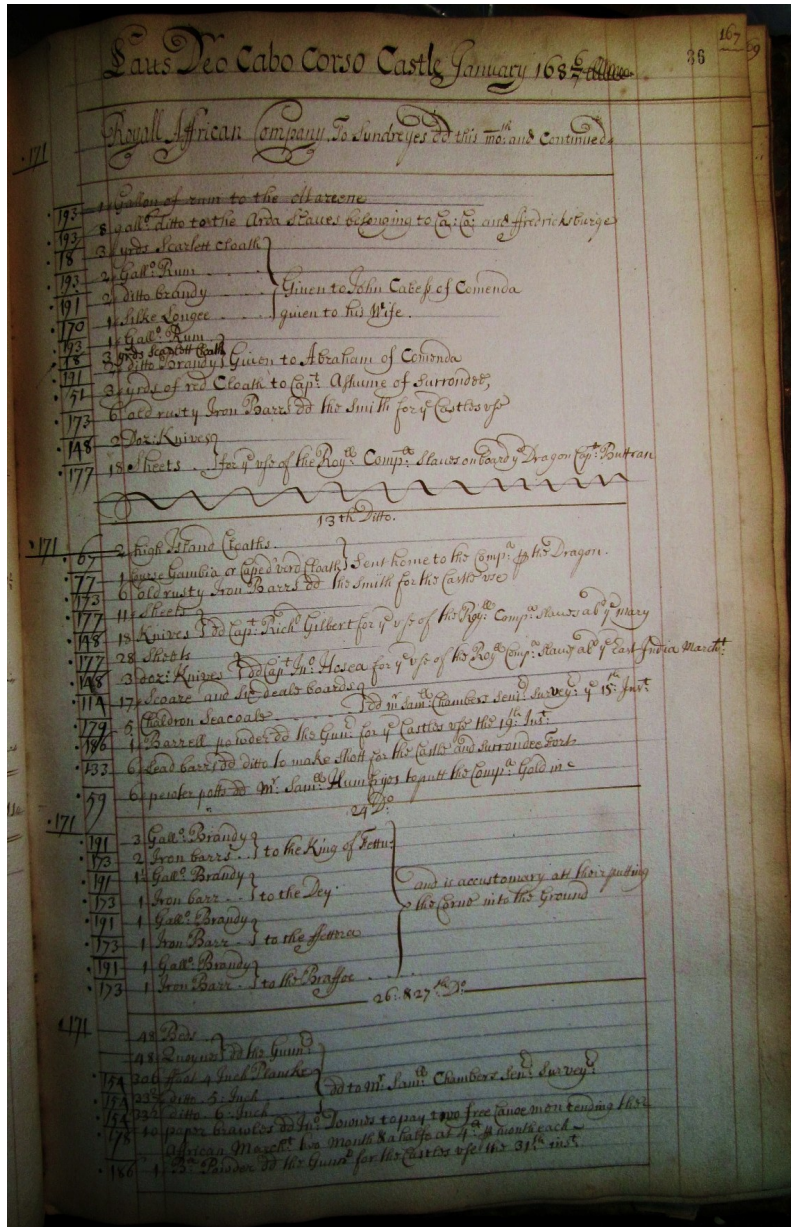 167
36
Laus Deo Cabo Corso Castle January 168 6/7
Royall Affrican Company To Sundryes dd this mo:th and Continued
171
193 1 Gallon of rum to the
193 8 gall:s ditto to the Arda Slaves belonging to Ca: Co: and ffredricksburge
78 3 yrds Scarlett Cloath
193 2 Gall:o Rum
191 2 ditto brandy Given to John Cabess of Comenda
170 1 Silke Longee given to his Wife.
193 1 Gall:o Rum
78 3 yrds Scarlett Cloath
191 2 ditto Brandy Given to Abraham of Comenda
51 3 yrds of red Cloath to Cap:t Ashume of Surrondee,
173 6 old rusty Iron Barrs dd the Smith for ye Castles use
148 2 Doz: Knives
177 18 Sheets for ye use of the Roy:ll Comp:a Slaves on board ye Dragon Cap:t Buttran
13th Ditto.
171
67 2 high Island Cloaths
77 1 Course Gambia or Cape d verd Cloath Sent home to the Comp:a p the Dragon.
173 6 old rusty Iron Barrs dd the Smith for the Castle use
177 11 Sheets
148 18 Knives dd Cap:t Rich:d Gilbert for ye use of the Roy:ll Comp:a Slaves ab:d ye Mary
177 28 Sheets
148 3 doz: Knives dd Cap:t Jn:o Hosea for ye use of the Roy:ll Comp:a Slaves ab:d ye East India March:t
114 17 Scoare and Six deale boards
179 5 Chaldron Seacoale dd m:r Sam:ll Chambers Sen:r Survey:r ye 15:th Ins:t
186 1 Barrell powder dd the Gun:r for ye Castles use the 19:th Ins:t
133 6 Lead barrs dd ditto to make Shott for the Castle and Surrondee Fort
59 6 pewter potts dd M:r Sam:ll Humfryes to putt the Comp:a Gold in
24 D:o
171
191 3 Gall:o Brandy
173 2 Iron barrs to the King of Fettu
191 1 Gall:o Brandy
173 1 Iron barr to the Dey. and is accustomary att their putting
191 1 Gall:o Brandy the Corne into the Ground
173 1 Iron Barr to the ffettera
191 1 Gall:o Brandy
173 1 Iron Barr to the Braffoe
26: & 27:th D:o
171
48 Beds
48 Quoynes dd the Gunn:r
154 306 ffoot 4 Inch Planke
154 ditto 5 Inch dd to M:r Sam:ll Chambers Sen:r Survey:r
154 332 ditto 6 Inch
178 10 paper brawles dd Jn:o Downes to pay two free Canoe men tending the
African March:t two Month & a halfe at 4:a p month each
186 1 B:a Powder dd the Gunn:r for the Castles use the 31:th inst